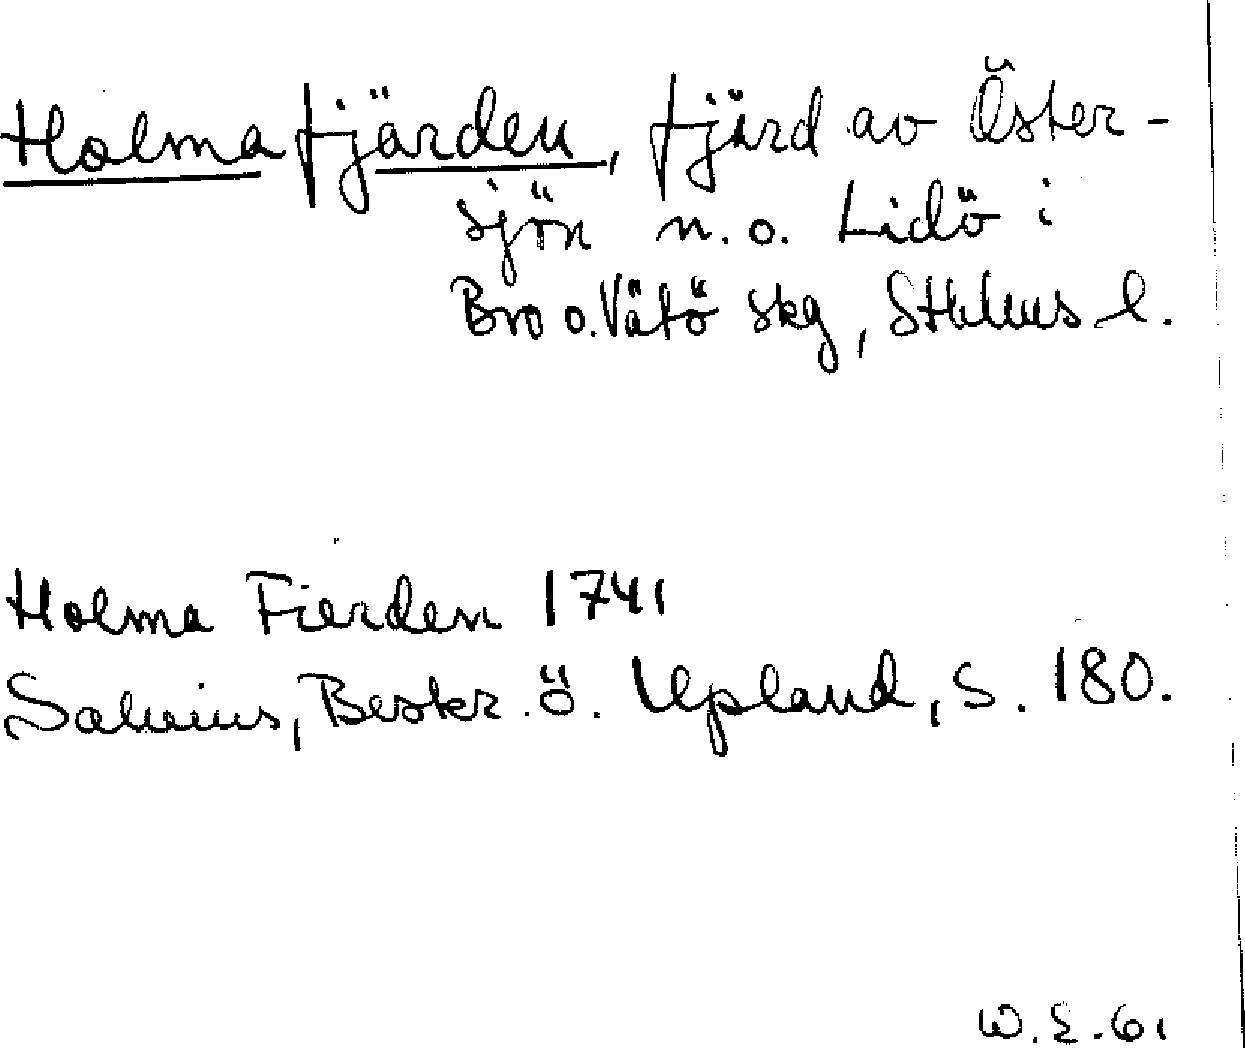 Holmafjärden, fjärd av Öster-
sjön n.o. Lidö i
Bro o. Vätö skg, Sthlms l.
Holma Fierden 1741
Salvius, Beskr. ö. Upland, S. 180.
W.E. 61